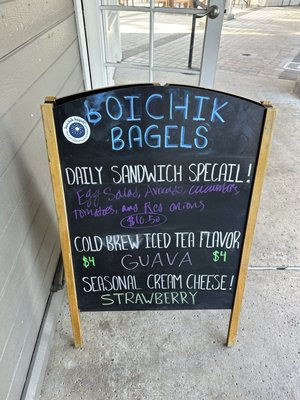 BOICHIK
BAGELS
DAILY SANDWICH SPECAIL!
Egg Salad, Avocado, cucumbers,
tomatoes, and Red onions
$10.50
COLD BREW ICED TEA FLAVOR
$4 GUAVA $4
SEASONAL CREAM CHEESE!
STRAWBERRY